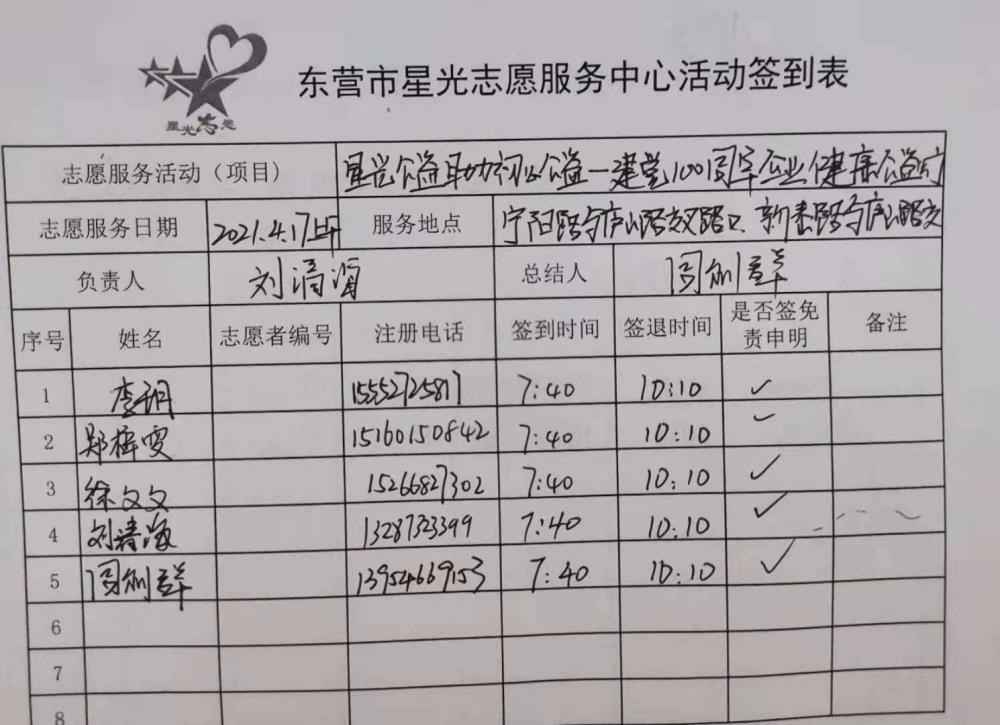 星光志愿
东营市星光志愿服务中心活动签到表
志愿服务活动（项目） 星光公益助力初心公益一建党100周年企业健康公益行
志愿服务日期 2021.4.17上午 服务地点 宁阳路与庐山路交叉路口、新泰路与庐山路交
负责人 刘清海 总结人
序号 姓名 志愿者编号 注册电话 签到时间 签退时间 是否签免责申明 备注
1 李玥 15552725817 7:40 10:10 ✓
2 郑梓雯 15160150842 7:40 10:10 ✓
3 徐文文 15266827302 7:40 10:10 ✓
4 刘清海 13287323399 7:40 10:10 ✓
5 13954669153 7:40 10:10 ✓
6
7
8